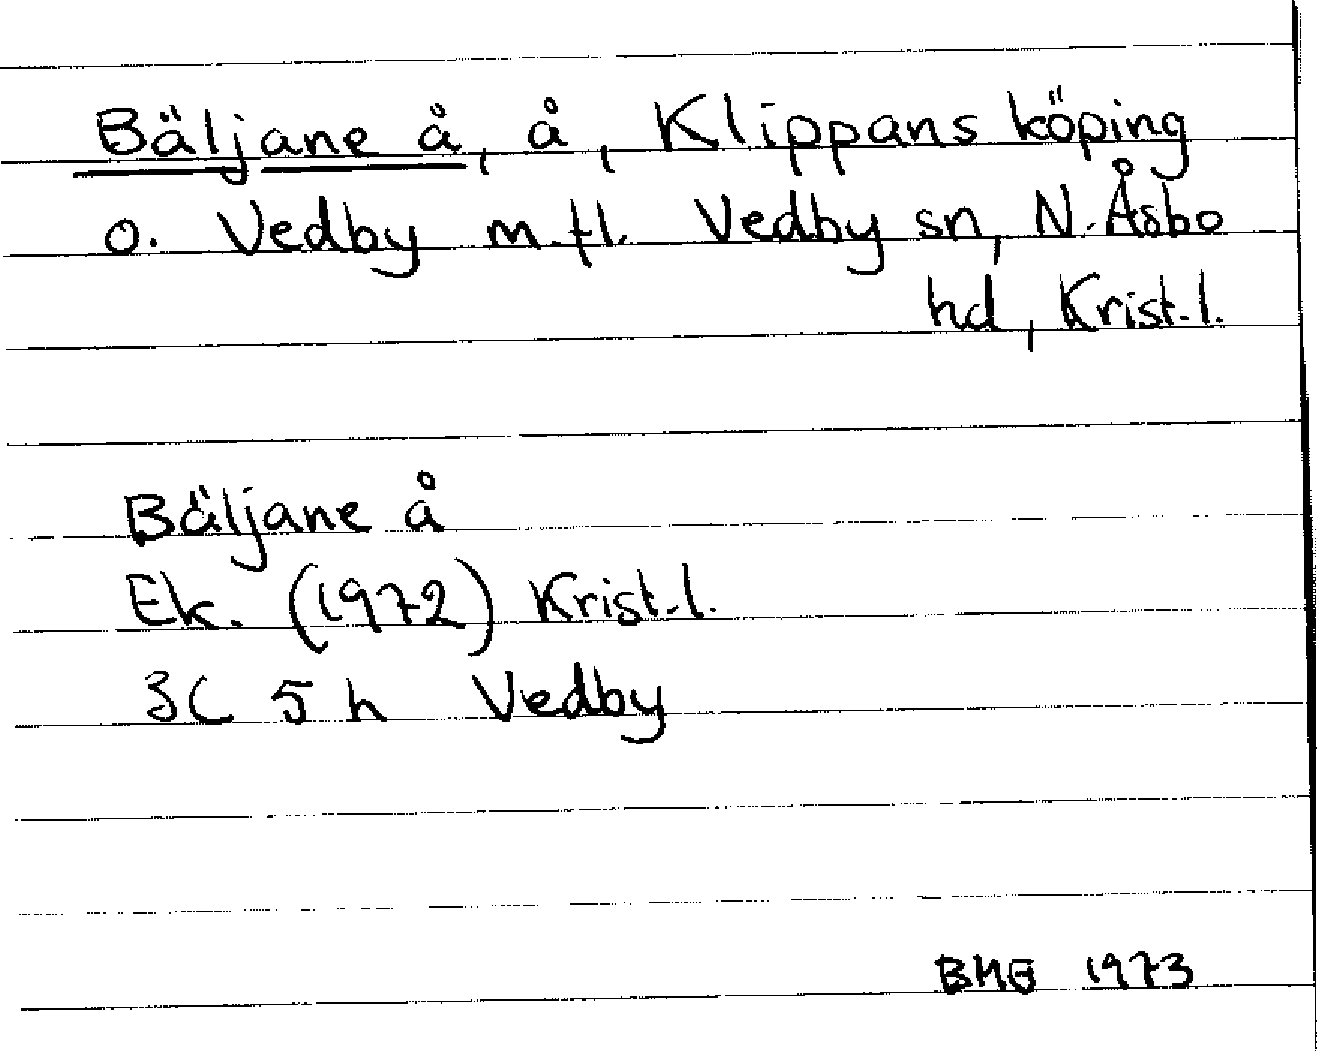 Bäljane å, å, Klippans köping
o. Vedby m.fl. Vedby sn, N. Åsbo
hd, Krist.l.
Bäljane å
Ek. (1972) Krist.l.
3C 5 h Vedby
1973